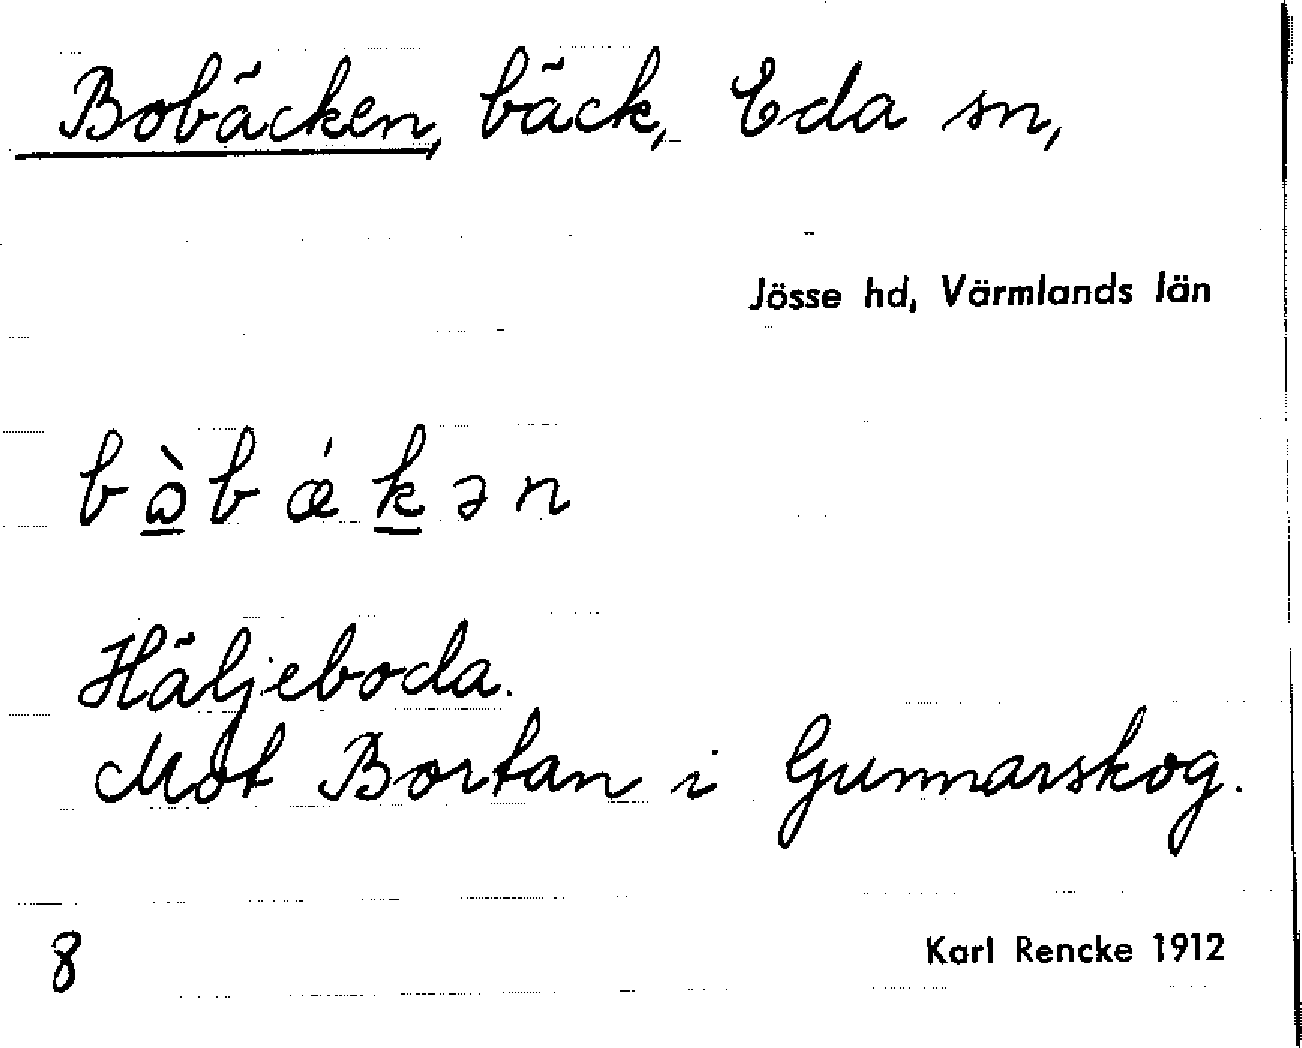 Bobäcken, bäck, Eda sn,
Jösse hd, Värmlands län
bɷ̀bǽkən
Häljeboda.
Mot Bortan i Gunnarskog.
8
Karl Rencke 1912